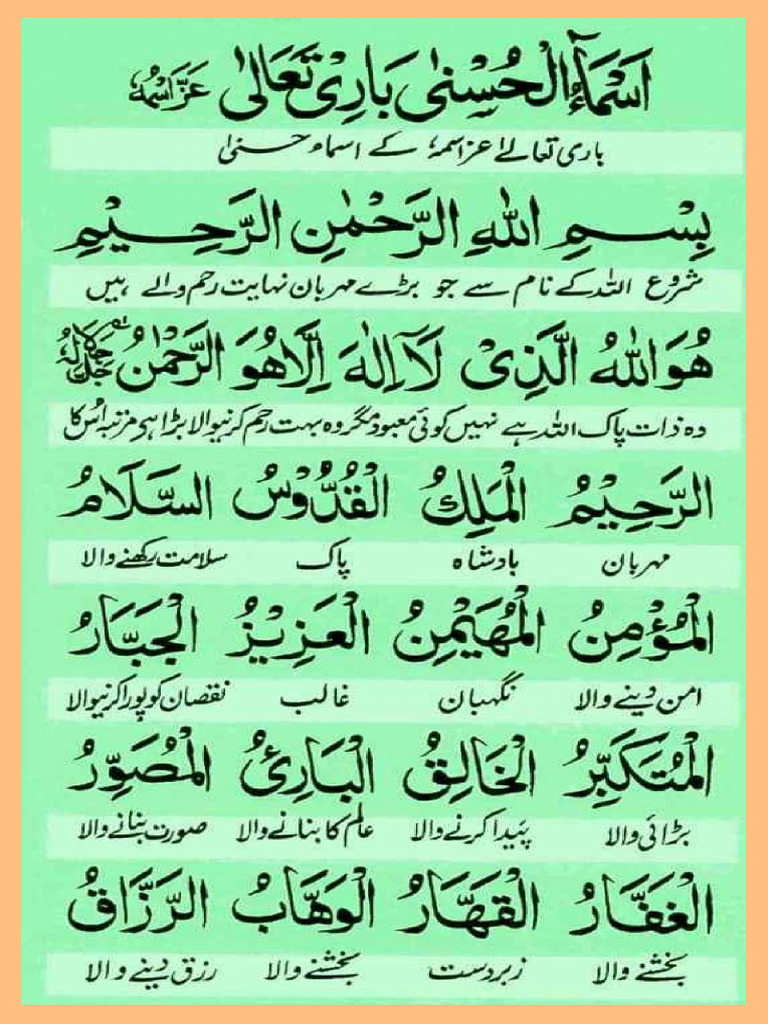 اَسْمَآءُ الْحُسْنٰى بَارِىْ تَعَالٰى عَزَّ اسْمُهٗ
باری تعالےٰ عز اسمہٗ کے اسماء حسنیٰ
بِسْمِ اللهِ الرَّحْمٰنِ الرَّحِيْمِ
شروع اللہ کے نام سے جو بڑے مہربان نہایت رحم والے ہیں
هُوَ اللهُ الَّذِىْ لَآ اِلٰهَ اِلَّا هُوَ الرَّحْمٰنُ جَلَّ جَلَالُهٗ
وہ ذات پاک اللہ ہے نہیں کوئی معبود مگر وہ بہت رحم کرنیوالا بڑا ہی مرتبہ اُس کا
الرَّحِيْمُ الْمَلِكُ الْقُدُّوْسُ السَّلَامُ
مہربان بادشاہ پاک سلامت رکھنے والا
الْمُؤْمِنُ الْمُهَيْمِنُ الْعَزِيْزُ الْجَبَّارُ
امن دینے والا نگہبان غالب نقصان کو پورا کرنیوالا
الْمُتَكَبِّرُ الْخَالِقُ الْبَارِئُ الْمُصَوِّرُ
بڑائی والا پَیدا کرنے والا عالم کا بنانے والا صورت بنانے والا
الْغَفَّارُ الْقَهَّارُ الْوَهَّابُ الرَّزَّاقُ
بخشنے والا زبردست بخشنے والا رزق دینے والا